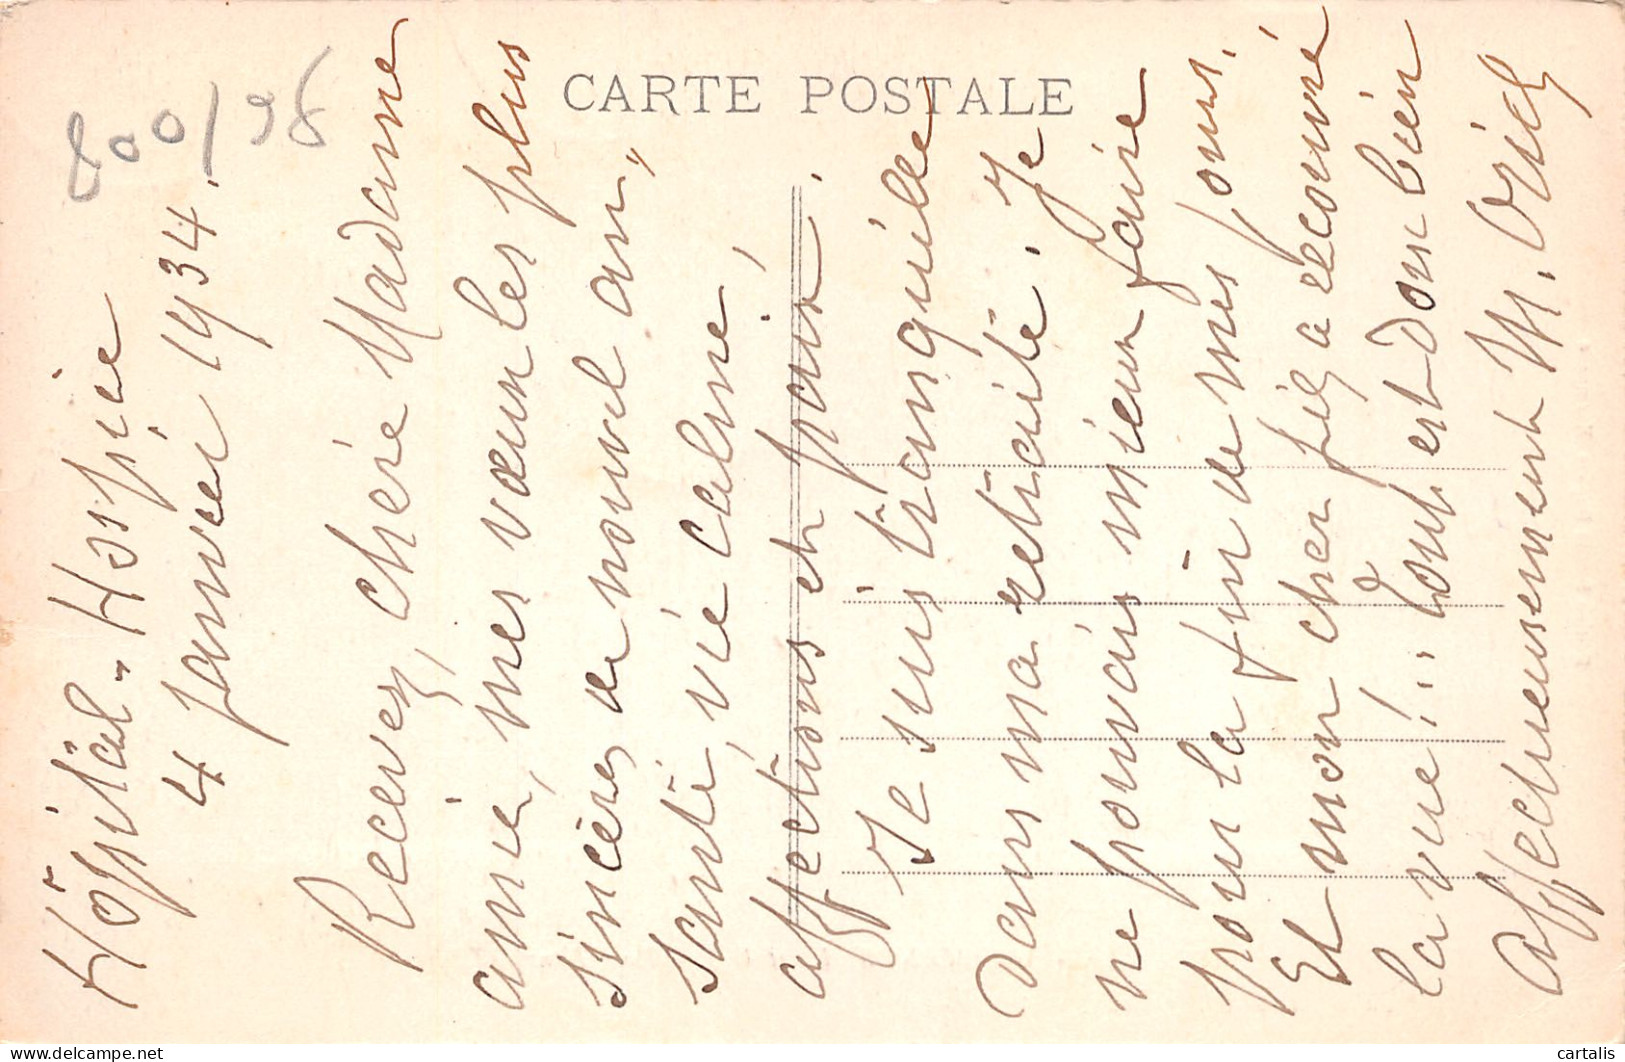 CARTE POSTALE
800/98
Hôpital-Hospice
4 janvier 1934.
Recevez, chère Madame
amie, mes vœux les plus
sincères de nouvel an,
santé, vie calme,
affections et paix.
Je suis tranquille
dans ma retraite. Je
ne pouvais mieux faire
pour la fin de mes jours.
Et mon cher fils a recouvré
la vue!.. tout est donc bien
Affectueusement M.
cartalis